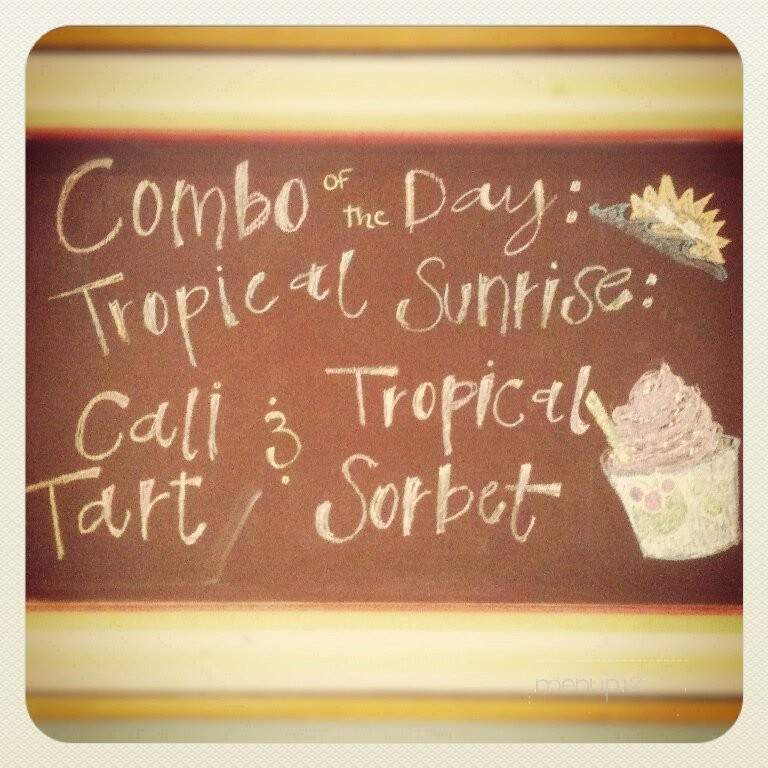 Combo of the Day:
Tropical Sunrise:
Cali & Tropical
Tart Sorbet
menupix